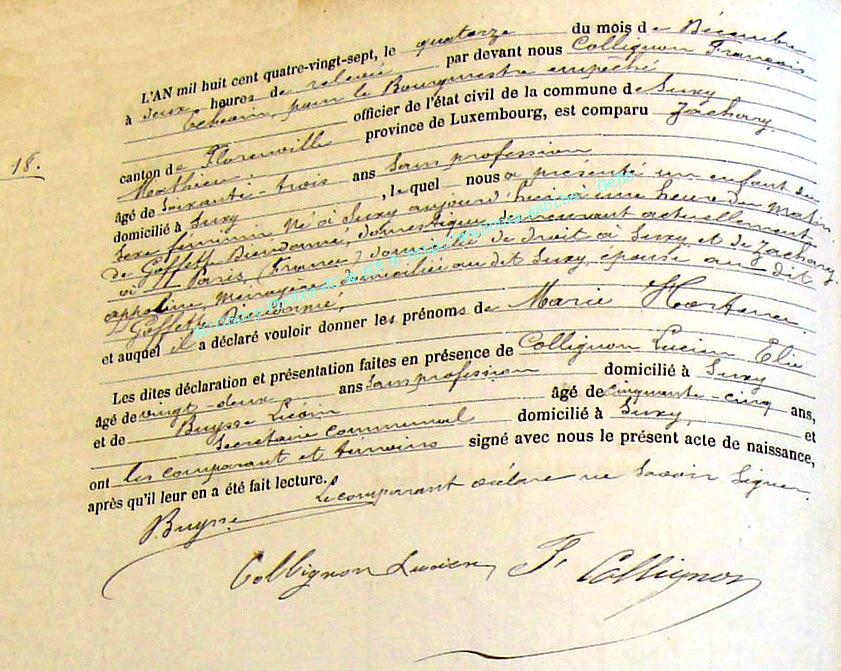 L'AN mil huit cent quatre-vingt-sept, le quatorze du mois de Décembre
à deux heures de relevée par devant nous Collignon François
Echevin, pour le Bourgmestre empêché
officier de l'état civil de la commune de Suxy
canton de Florenville province de Luxembourg, est comparu Zachary
Mathieu
âgé de Soixante-trois ans Sans profession
domicilié à Suxy, lequel nous a présenté un enfant du
Sexe féminin né à Suxy aujourd'hui à une heure du matin
de Goffette Dieudonné, domestique, demeurant actuellement
à Paris (France) domicilié de droit à Suxy et de Zachary
appoline ménagère domiciliée au dit Suxy, épouse au dit
Goffette Dieudonné,
et auquel il a déclaré vouloir donner les prénoms de Marie Hortense.
Les dites déclaration et présentation faites en présence de Collignon Lucien Elie
âgé de vingt-deux ans Sans profession domicilié à Suxy
et de Buysse âgé de cinquante-cinq ans,
Secrétaire communal domicilié à Suxy, et
ont les comparant et témoins signé avec nous le présent acte de naissance,
après qu'il leur en a été fait lecture.
Le comparant déclare ne Savoir Signer.
18.
Buysse
Collignon Lucien F. Collignon